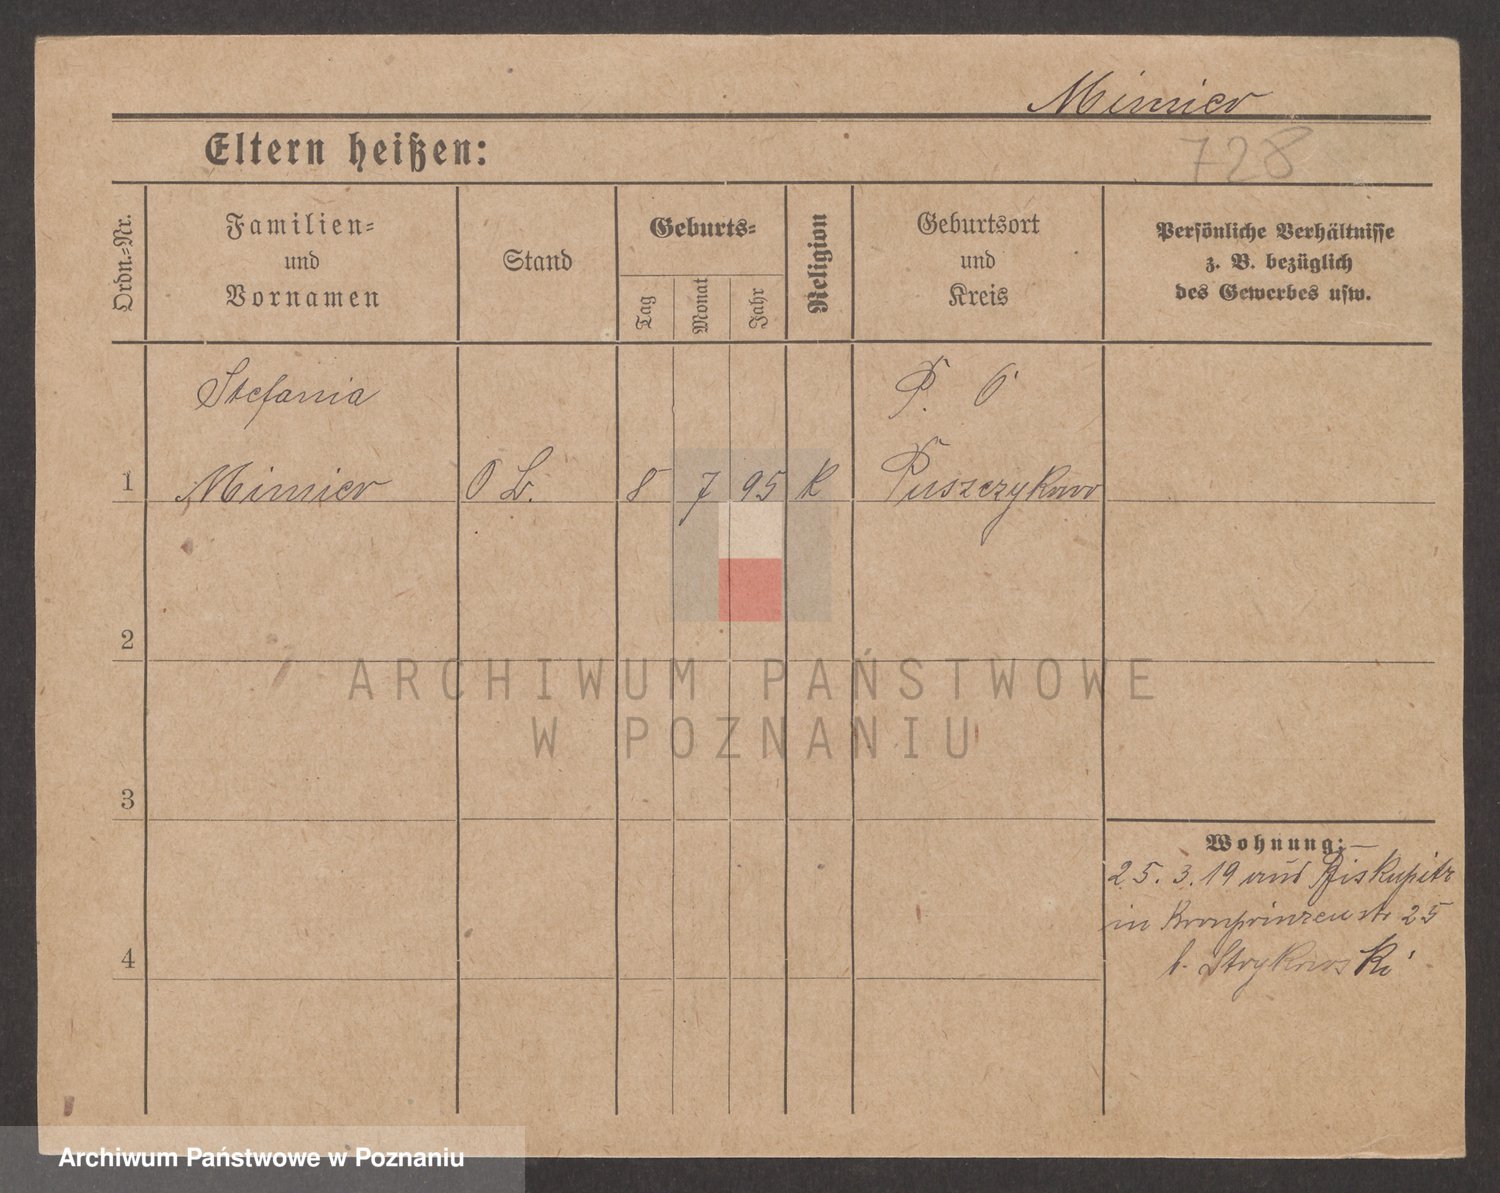 Mimier
728
Eltern heißen:
Ordn.-Nr.
Familien-
und
Vornamen
Stand
Geburts-
Tag
Monat
Jahr
Religion
Geburtsort
und
Kreis
Persönliche Verhältnisse
z. B. bezüglich
des Gewerbes usw.
Stefania
P. O
1 Mimier O L. 8 7 95 k Puszczykowo
2
3
4
Wohnung:
25.3.19 aus Biskupitz
in Kronprinzenstr 25
b. Strykowski
ARCHIWUM PAŃSTWOWE
W POZNANIU
Archiwum Państwowe w Poznaniu